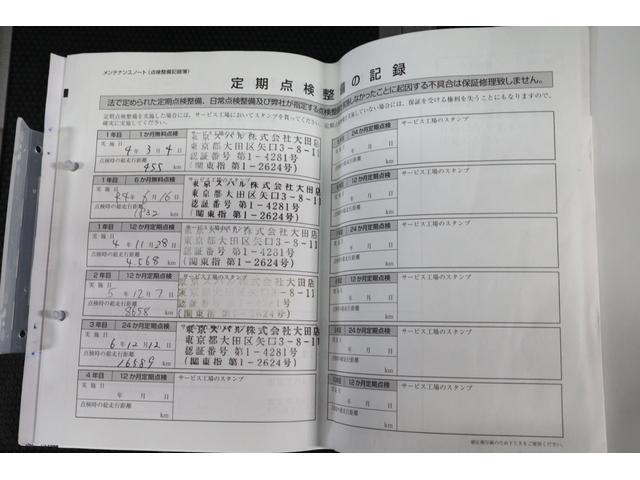 メンテナンスノート(点検整備記録簿)
定期点検整備の記録
法で定められた定期点検整備、日常点検整備及び弊社が指定する点検整備
しなかったことに起因する不具合は保証修理致しません。
定期点検整備を実施した場合は、サービス工場においてスタンプを貰ってください。
実施していない場合には、保証を受ける権利を失うこともありますので、
確実に実施してください。
1年目 1か月無料点検
サービス工場のスタンプ
実施日
4年3月4日
点検時の総走行距離
455 km
東京スバル株式会社大田店
東京都大田区矢口3-8-11
認証番号 第1-4281号
(関東指 第1-2624号)
1年目 6か月無料点検
サービス工場のスタンプ
実施日
R4年6月16日
点検時の総走行距離
1832 km
東京スバル株式会社大田店
東京都大田区矢口3-8-11
認証番号 第1-4281号
(関東指 第1-2624号)
1年目 12か月定期点検
サービス工場のスタンプ
実施日
4年11月28日
点検時の総走行距離
4,568 km
東京スバル株式会社大田店
東京都大田区矢口3-8-11
認証番号 第1-4281号
(関東指 第1-2624号)
2年目 12か月定期点検
サービス工場のスタンプ
実施日
5年12月7日
点検時の総走行距離
8658 km
東京スバル株式会社大田店
東京都大田区矢口3-8-11
認証番号 第1-4281号
(関東指 第1-2624号)
3年目 24か月定期点検
サービス工場のスタンプ
実施日
6年12月12日
点検時の総走行距離
16589 km
東京スバル株式会社大田店
東京都大田区矢口3-8-11
認証番号 第1-4281号
(関東指 第1-2624号)
4年目 12か月定期点検
サービス工場のスタンプ
実施日
年 月 日
点検時の総走行距離
km
24か月定期点検
サービス工場のスタンプ
年 月 日
km
12か月定期点検
サービス工場のスタンプ
年 月 日
km
24か月定期点検
サービス工場のスタンプ
年 月 日
km
12か月定期点検
サービス工場のスタンプ
年 月 日
km
24か月定期点検
サービス工場のスタンプ
年 月 日
km
12か月定期点検
サービス工場のスタンプ
年 月 日
km